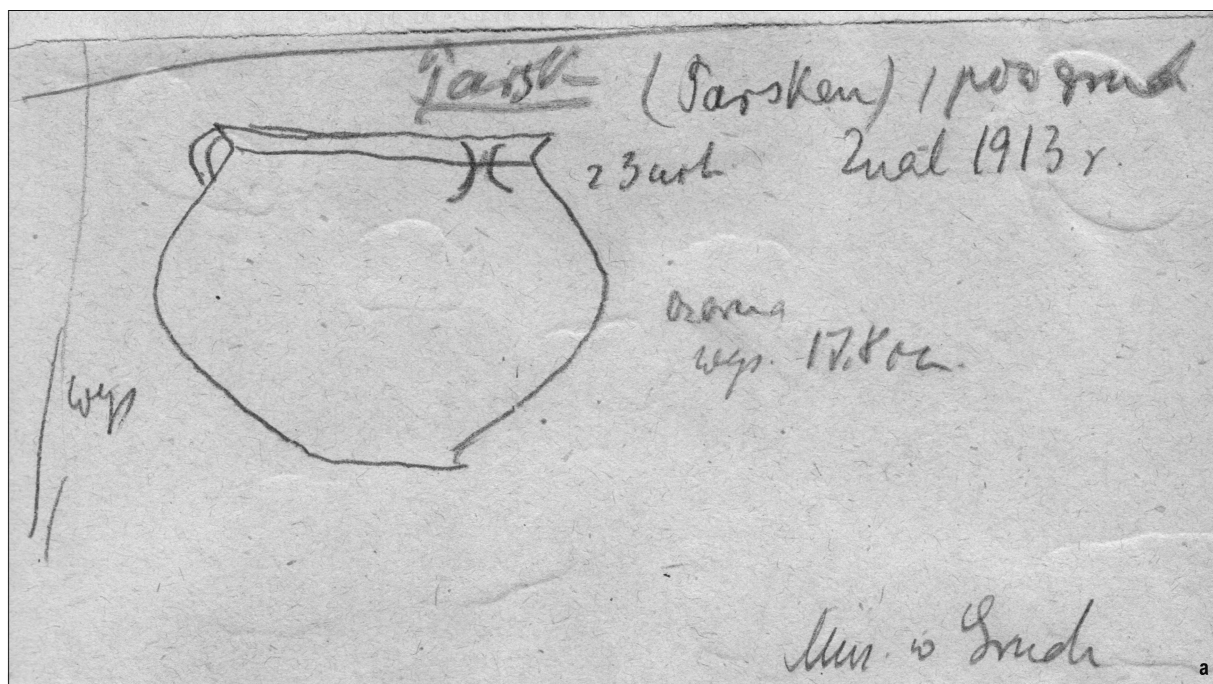 Parsk (Parsken), pow grudz
z 3 uch. Znal 1913 r.
czarna
wys. 17,8 cm.
wys
Muz. w Grudz
a